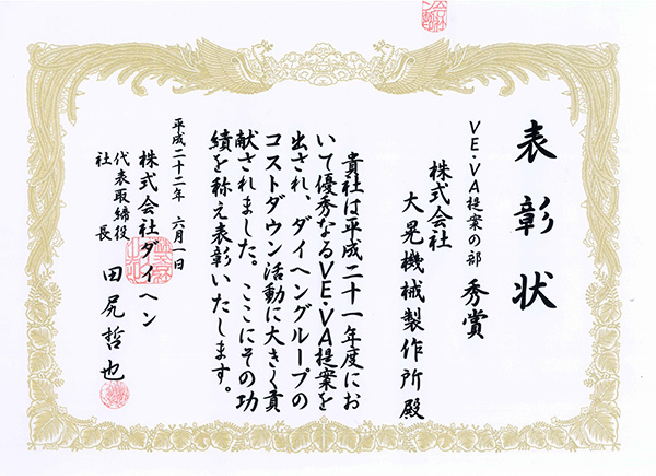 表彰状
VE・VA提案の部 秀賞
株式会社
大晃機械製作所殿
貴社は平成二十一年度にお
いて優秀なるVE・VA提案を
出され、ダイヘングループの
コストダウン活動に大きく貢
献されました。ここにその功
績を称え表彰いたします。
平成二十二年 六月一日
株式会社ダイヘン
代表取締役
社長
田尻哲也